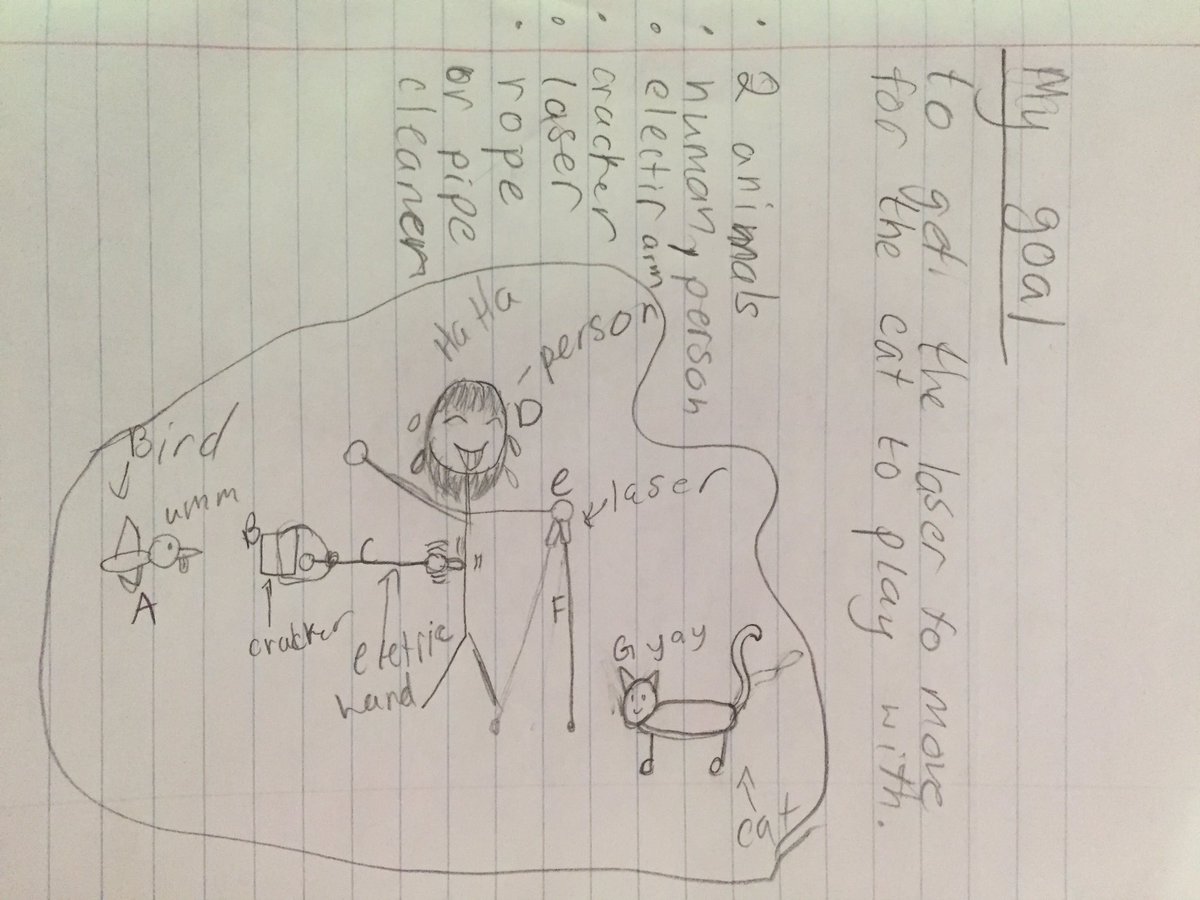 My goal
to get the laser to move
for the cat to play with.
2 animals
human, person
electir arm
cracker
laser
rope
or pipe
cleaner
Ha
Ha
person
D
e
laser
Bird
umm
A
B
C
cracker
eletric
hand
F
G yay
cat